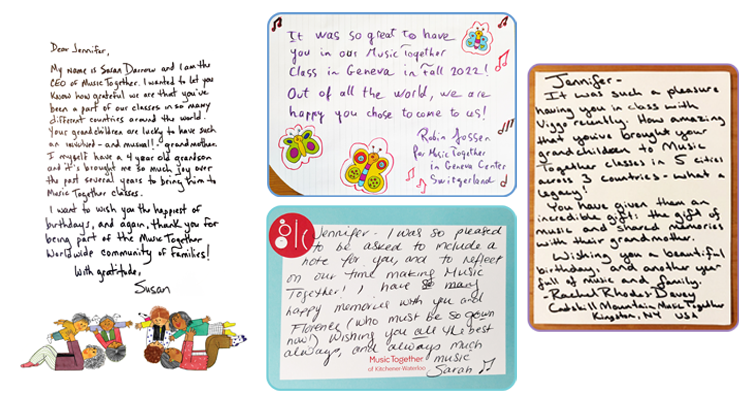 Dear Jennifer,
My name is Susan Darrow and I am the
CEO of Music Together. I wanted to let you
know how grateful we are that you've
been a part of our classes in so many
different countries around the world.
Your grandchildren are lucky to have such
an involved - and musical! - grandmother.
I myself have a 4 year old grandson
and it's brought me so much joy over
the past several years to bring him to
Music Together classes.
I want to wish you the happiest of
birthdays, and again, thank you for
being part of the Music Together
Worldwide community of families!
With gratitude,
Susan
It was so great to have
you in our Music Together
Class in Geneva in Fall 2022!
Out of all the world, we are
happy you chose to come to us!
Robin Jossen
for Music Together
in Geneva Center
Switzerland
glc
Jennifer - I was so pleased
to be asked to include a
note for you, and to reflect
on our time making Music
Together! I have so many
happy memories with you and
Florence (who must be so grown
now!) Wishing you all the best
always, and always much
music
Sarah
Music Together
of Kitchener-Waterloo
Jennifer -
It was such a pleasure
having you in class with
Viggo recently. How amazing
that you've brought your
grandchildren to Music
Together classes in 5 cities
across 3 countries - what a
legacy!
You have given them an
incredible gift: the gift of
music and shared memories
with their grandmother.
Wishing you a beautiful
birthday, and another year
full of music and family.
- Rachel Rhodes Davey
Catskill Mountain Music Together
Kingston, NY USA